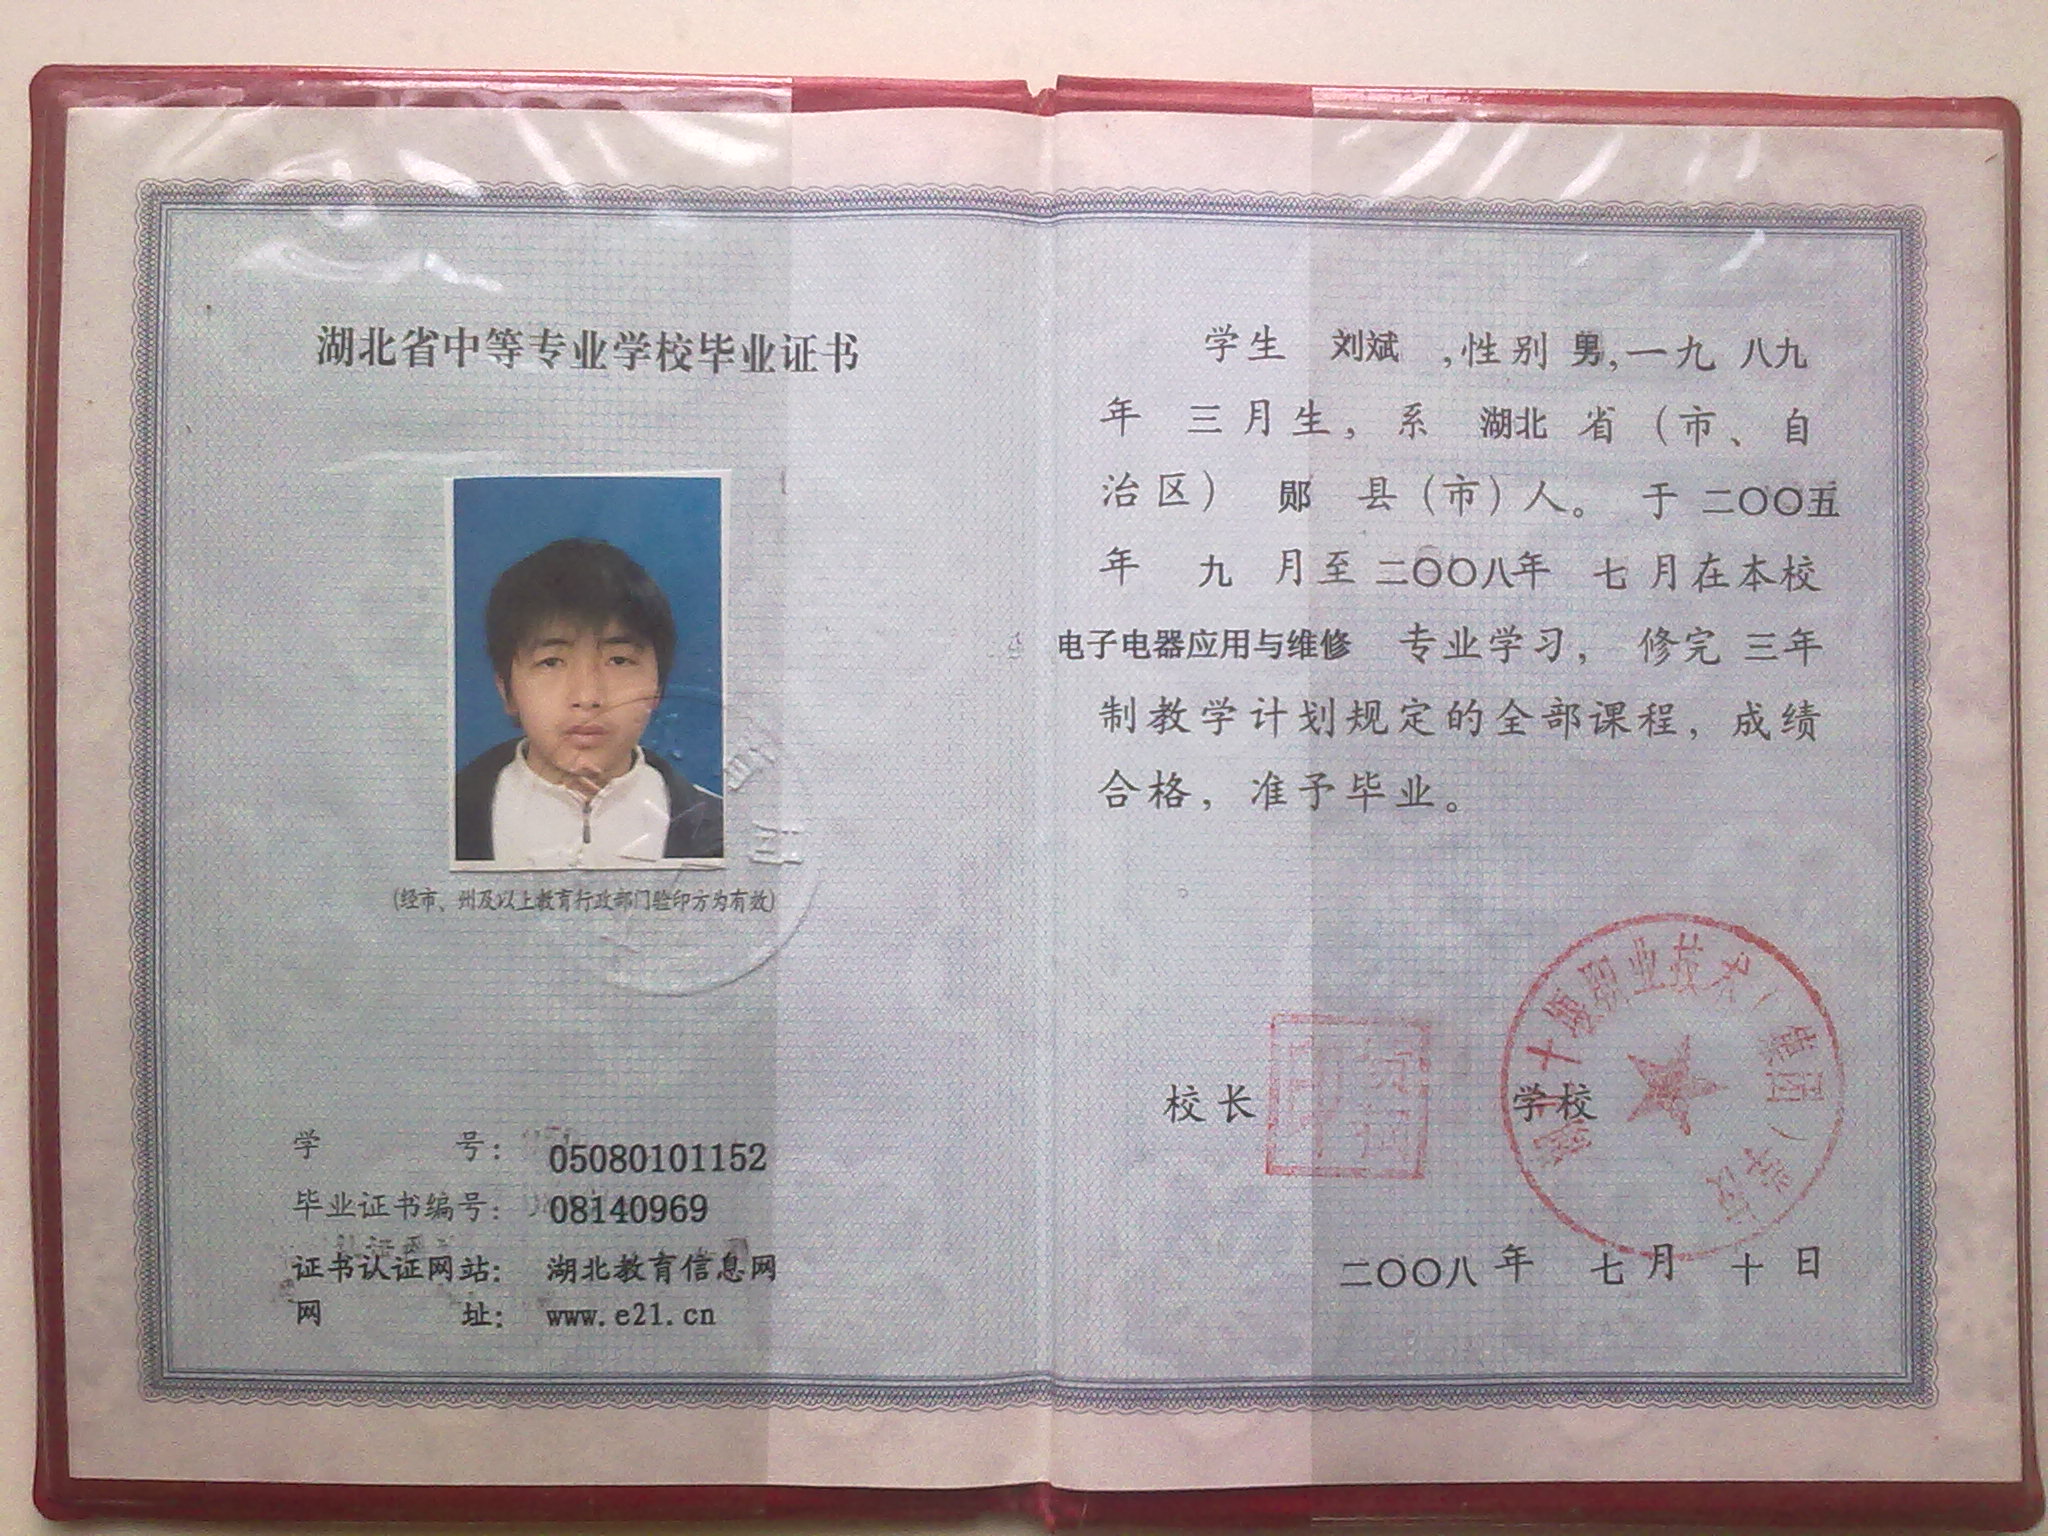 湖北省中等专业学校毕业证书
(经市、州及以上教育行政部门验印方为有效)
学 号： 05080101152
毕业证书编号： 08140969
证书认证网站： 湖北教育信息网
网 址： www.e21.cn
学生 刘斌 ,性别 男,一九 八九
年 三月生，系 湖北 省（市、自
治区） 郧 县（市）人。 于 二〇〇五
年 九 月至 二〇〇八年 七 月在本校
电子电器应用与维修 专业学习， 修完 三年
制教学计划规定的全部课程，成绩
合格，准予毕业。
校长
学校
十堰职业技术（集团）学校
二〇〇八 年 七 月 十 日